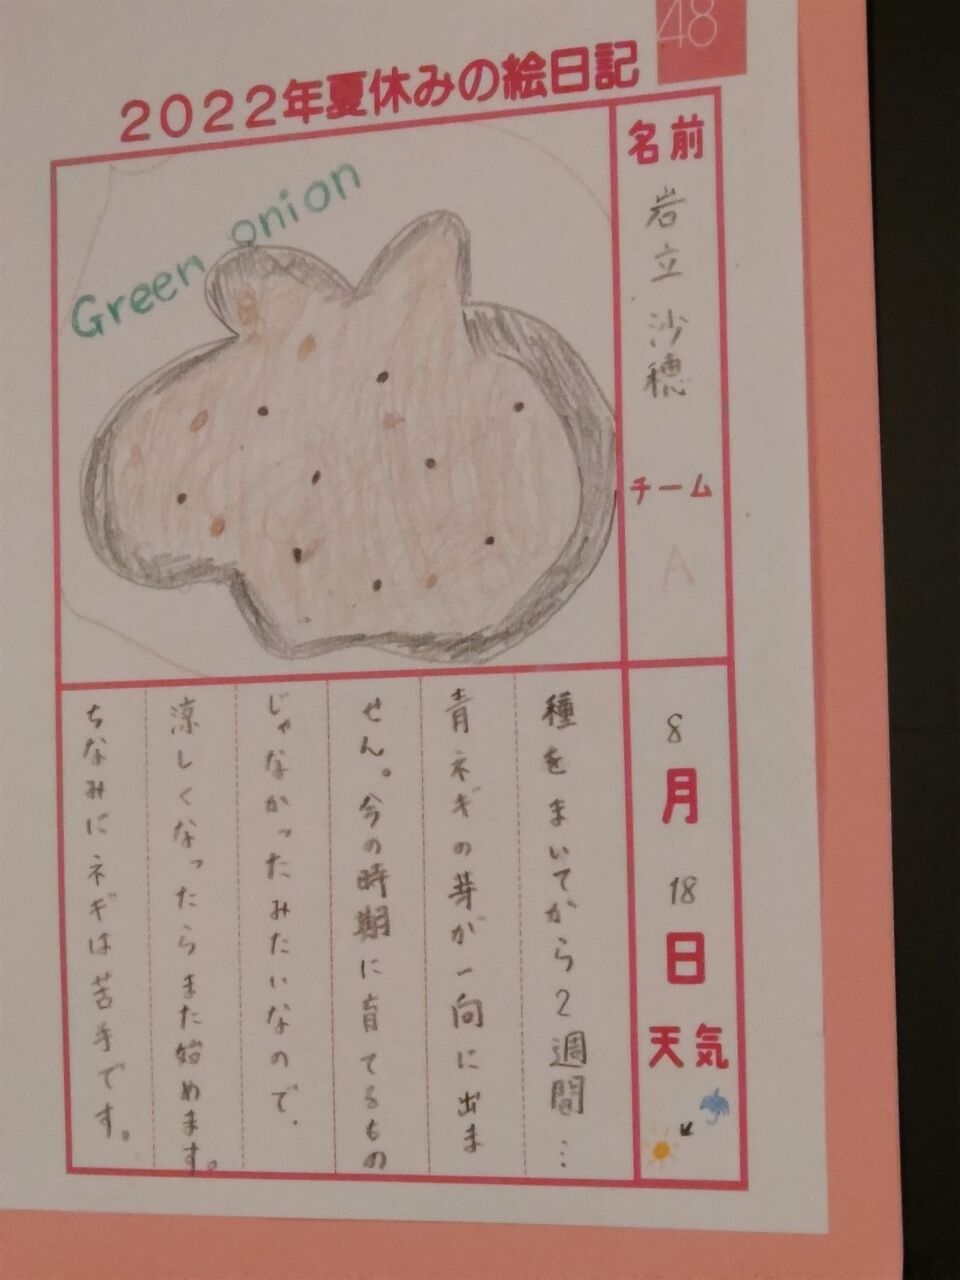 48
2022年夏休みの絵日記
Green onion
名前
岩立沙穂
チーム
A
8月18日
天気
種をまいてから2週間…
青ネギの芽が一向に出ま
せん。今の時期に育てるもの
じゃなかったみたいなので、
涼しくなったらまた始めます。
ちなみにネギは苦手です。